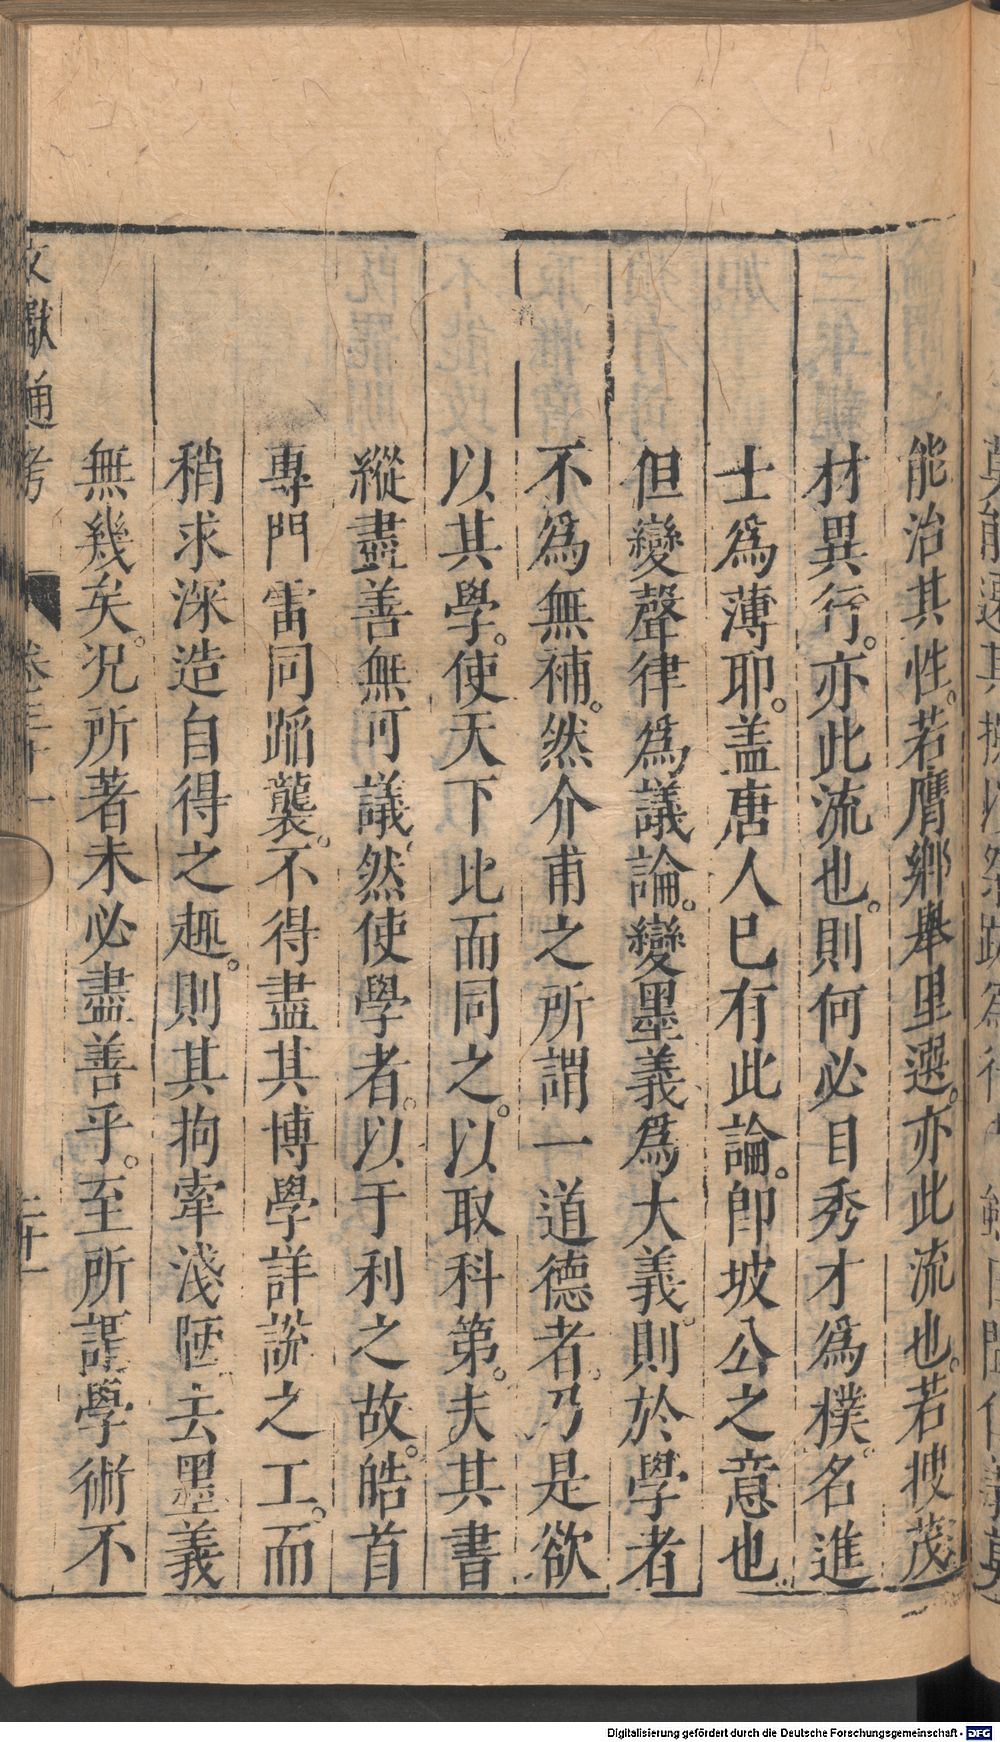 能治其性。若膺鄉舉里選。亦此流也。若搜茂
材異行。亦此流也。則何必目秀才爲樸。名進
士爲薄耶。盖唐人已有此論。卽坡公之意也
但變聲律爲議論。變墨義爲大義。則於學者
不爲無補。然介甫之所謂一道德者。乃是欲
以其學。使天下比而同之。以取科第。夫其書
縱盡善無可議。然使學者。以于利之故。皓首
專門雷同蹈襲。不得盡其博學詳說之工。而
稍求深造自得之趣。則其拘牽淺陋去墨義
無幾矣。况所著未必盡善乎。至所謂學術不
文獻通考 卷三十一
Digitalisierung gefördert durch die Deutsche Forschungsgemeinschaft - DFG